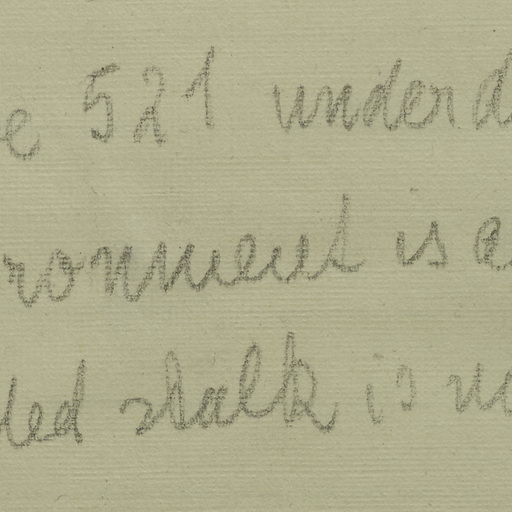 e 521 under d
ronment is a
led stalk is